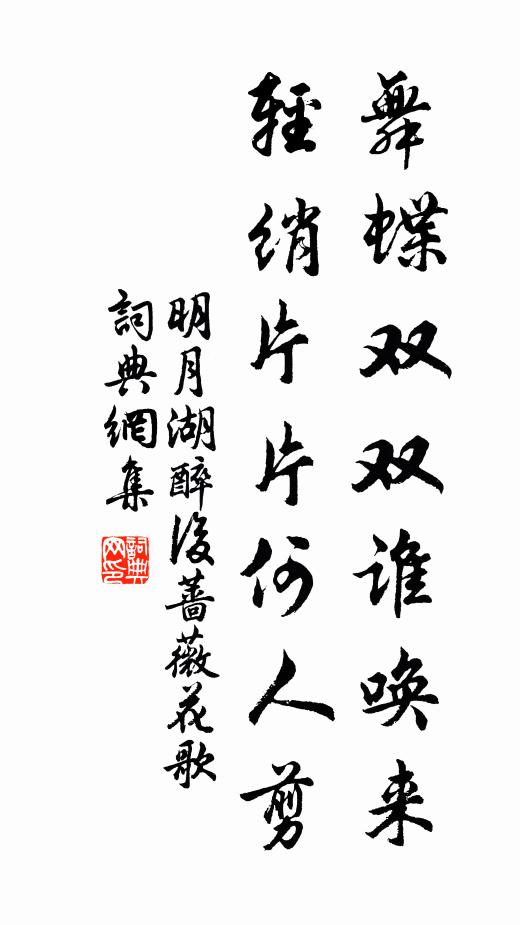 舞蝶双双谁唤来
輕綃片片何人剪
明月湖醉後薔薇花歌
詞典網集
詞典网印